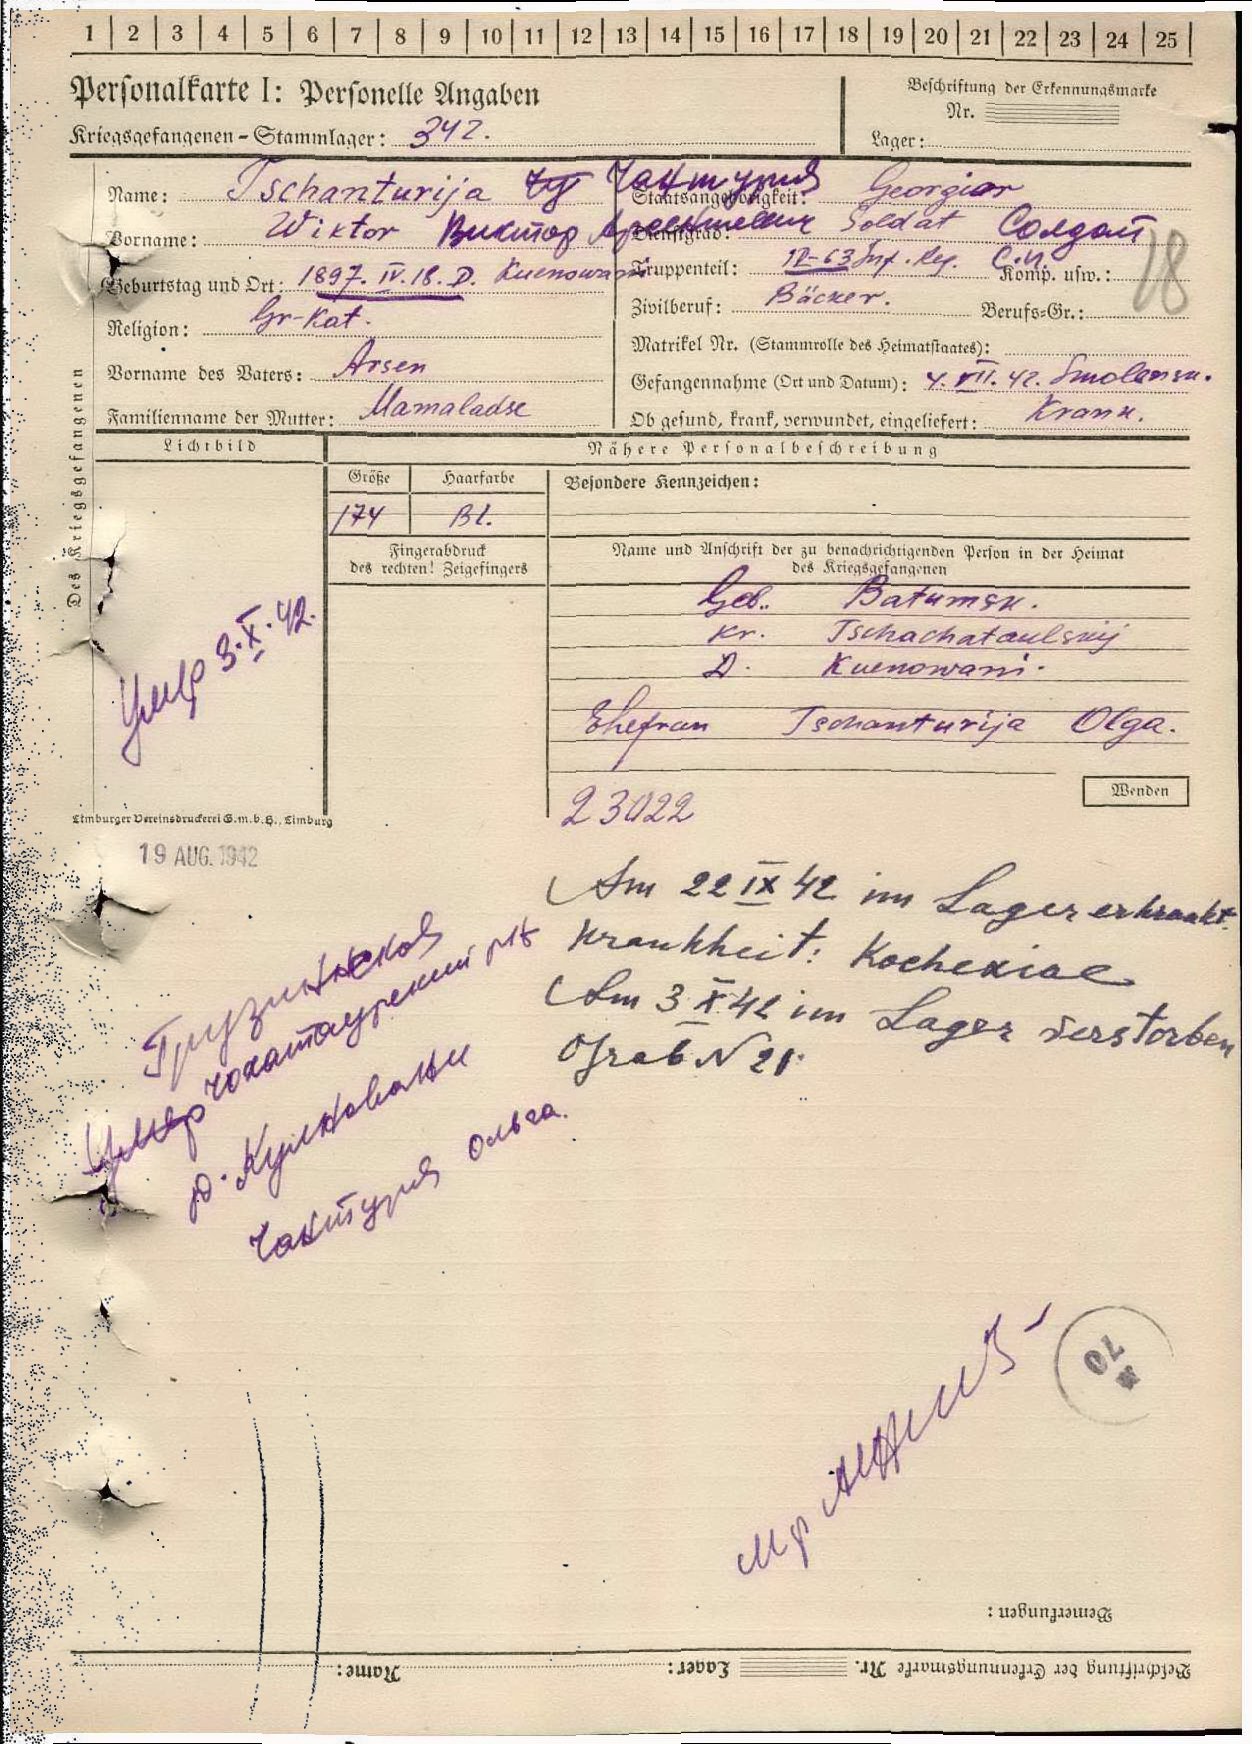 1 2 3 4 5 6 7 8 9 10 11 12 13 14 15 16 17 18 19 20 21 22 23 24 25
Personalkarte I: Personelle Angaben
Kriegsgefangenen-Stammlager: 342.
Beschriftung der Erkennungsmarke
Nr.
Lager:
Des Kriegsgefangenen
Name: Tschanturija Чантурия
Vorname: Wiktor Виктор
Geburtstag und Ort: 1897. IV. 18. D. Kuenowani
Religion: Gr-Kat.
Vorname des Vaters: Arsen
Familienname der Mutter: Mamaladse
Staatsangehörigkeit: Georgier
Dienstgrad: Soldat Солдат
Truppenteil: 63 Inf. Reg. Komp. usw.:
18
Zivilberuf: Bäcker. Berufs-Gr.:
Matrikel Nr. (Stammrolle des Heimatstaates):
Gefangennahme (Ort und Datum): 4. VII. 42. Smolensk.
Ob gesund, krank, verwundet, eingeliefert: Krank.
Lichtbild
Nähere Personalbeschreibung
Größe Haarfarbe
174 Bl.
Besondere Kennzeichen:
Fingerabdruck
des rechten! Zeigefingers
Name und Anschrift der zu benachrichtigenden Person in der Heimat
des Kriegsgefangenen
Geb. Batumsk.
Kr. Tschachataulskij
D. Kuenowani.
Ehefrau Tschanturija Olga.
Wenden
Умер 3.X.42.
Limburger Vereinsdruckerei G.m.b.H., Limburg
19 AUG. 1942
23022
Am 22 IX 42 im Lager erkrankt.
Krankheit: Kochexiae
Am 3 X 42 im Lager verstorben
Grab N 21.
Грузинская
Чохатаурский
Умер
д. Куеновани
Чантурия Ольга.
OL
Bemerkungen:
Beschriftung der Erkennungsmarke Nr. Lager: Name: